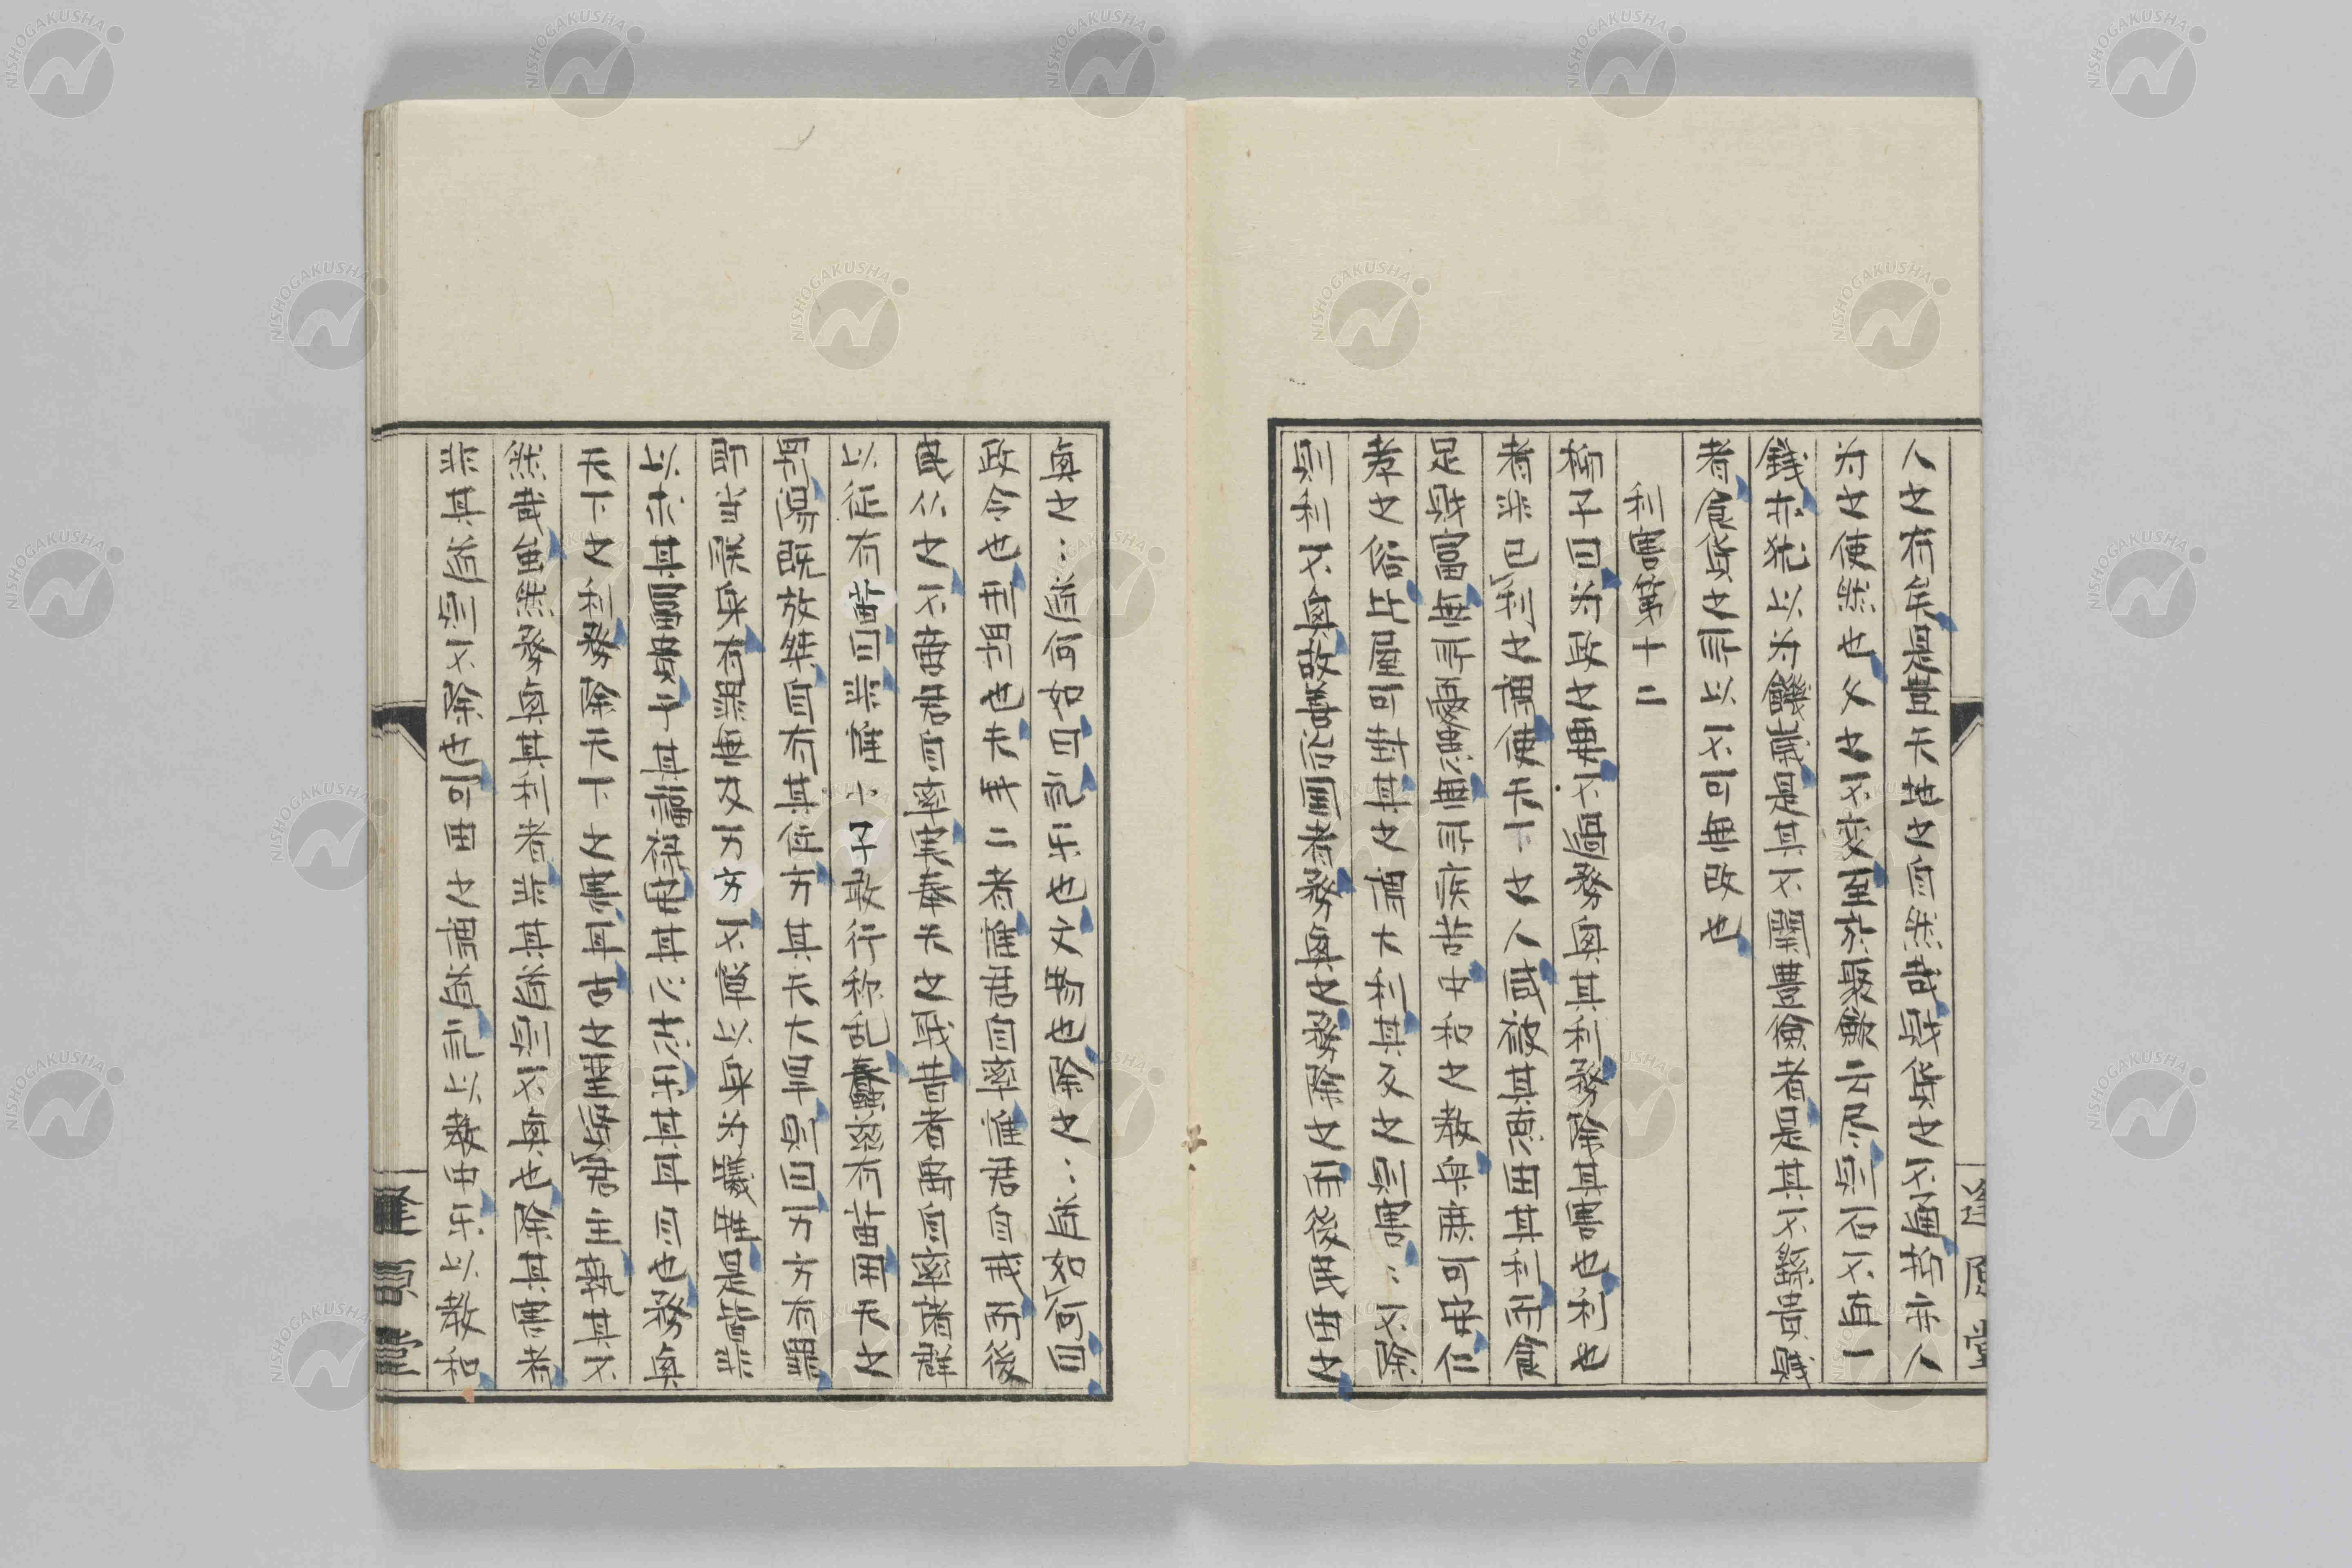 人之有年是豈天地之自然哉財貨之不通抑亦人
為之使然也久之不变至於聚斂云尽則石不直一
錢亦犯以為饑歲是其不關豊儉者是其不繇貴賎
者食貨之所以不可無政也
利害第十二
柳子曰為政之要不過務興其利務除其害也利也
者非己利之謂使天下之人咸被其恵由其利而食
足財富無所憂患無所疾苦中和之教衆庶可安仁
孝之俗比屋可封其之謂大利其反之則害〻不除
則利不興故善治国者務興之務除之而後民由之
逢原堂
興之〻道何如曰礼乐也文物也除之〻道如何曰
政令也刑罰也夫二者誰君自率誰君自戒而後
民从之不啻君自率奉天之職昔者禹自率諸群
以征有苗曰非惟小子敢行称乱蠢茲有苗用天之
罰湯既放桀自有其任方其天大旱則曰万方有罪
即当朕身有罪無及万方不憚以身为犠牲是皆非
以求其富貴干其福禄安其心志乐其耳目也務興
天下之利務除天下之害耳古之君主孰其不
然哉虽然務興其利者非其道則不興也除其害者
非其道則不除也可由之謂道礼以教中乐以教和